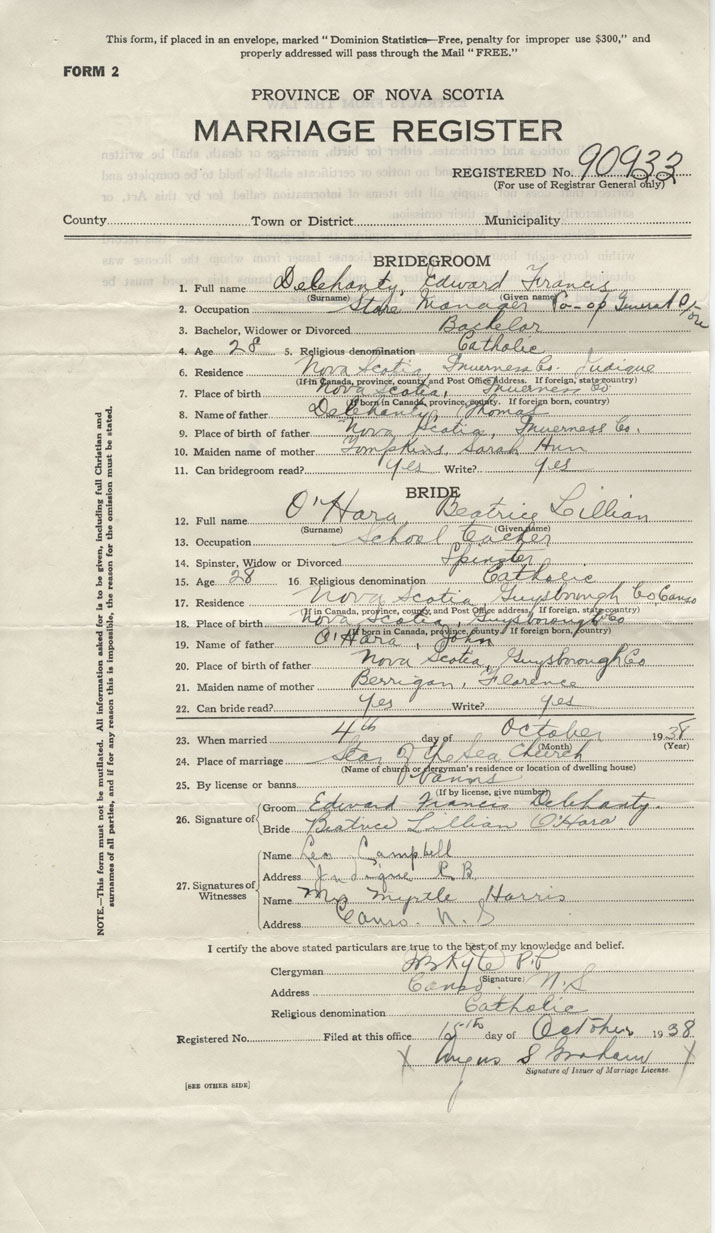 This form, if placed in an envelope, marked "Dominion Statistics—Free, penalty for improper use $300," and
properly addressed will pass through the Mail "FREE."
FORM 2
PROVINCE OF NOVA SCOTIA
MARRIAGE REGISTER
REGISTERED No. 90933
(For use of Registrar General only)
County Town or District Municipality
BRIDEGROOM
1. Full name Delehanty, Edward Francis
(Surname) (Given name)
2. Occupation Store Manager Co-op General Store
3. Bachelor, Widower or Divorced Bachelor
4. Age 28 5. Religious denomination Catholic
6. Residence Nova Scotia, Inverness Co. Judique
(If in Canada, province, county and Post Office Address. If foreign, state country)
7. Place of birth Nova Scotia, Inverness Co
(If born in Canada, province, county. If foreign born, country)
8. Name of father Delehanty, Thomas
9. Place of birth of father Nova Scotia, Inverness Co.
10. Maiden name of mother Tompkins, Sarah Ann
11. Can bridegroom read? Yes Write? Yes
BRIDE
12. Full name O'Hara, Beatrice Lillian
(Surname) (Given name)
13. Occupation School Teacher
14. Spinster, Widow or Divorced Spinster
15. Age 28 16. Religious denomination Catholic
17. Residence Nova Scotia Guysborough Co, Canso
(If in Canada, province, county, and Post Office address. If foreign, state country)
18. Place of birth Nova Scotia, Guysborough Co
(If born in Canada, province, county. If foreign born, country)
19. Name of father O'Hara, John
20. Place of birth of father Nova Scotia, Guysborough Co
21. Maiden name of mother Berrigan, Florence
22. Can bride read? Yes Write? Yes
23. When married 4th day of October 1938
(Month) (Year)
24. Place of marriage Star of the Sea Church
(Name of church or clergyman's residence or location of dwelling house)
25. By license or banns Banns
(If by license, give number)
26. Signature of Groom Edward Francis Delehanty
Bride Beatrice Lillian O'Hara
27. Signatures of Witnesses Name Leo Campbell
Address Judique C.B.
Name Mrs Myrtle Harris
Address Canso. N.S
I certify the above stated particulars are true to the best of my knowledge and belief.
Clergyman Kyte P.P
(Signature)
Address Canso. N.S
Religious denomination Catholic
Registered No. Filed at this office 15th day of October 1938
X Angus S Graham X
Signature of Issuer of Marriage License.
[SEE OTHER SIDE]
NOTE.—This form must not be mutilated. All information asked for is to be given, including full Christian and
surnames of all parties, and if for any reason this is impossible, the reason for the omission must be stated.